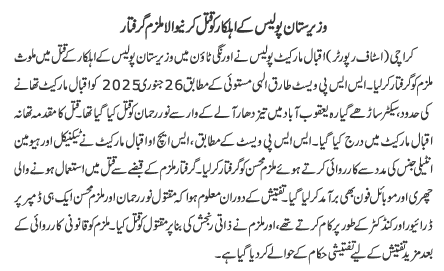 وزیرستان پولیس کے اہلکار کو قتل کرنیوالا ملزم گرفتار
کراچی (اسٹاف رپورٹر) اقبال مارکیٹ پولیس نے اورنگی ٹاؤن میں وزیرستان پولیس کے اہلکار کے قتل میں ملوث
ملزم کو گرفتار کر لیا۔ ایس ایس پی ویسٹ طارق الہی مستوئی کے مطابق 26 جنوری 2025 کو اقبال مارکیٹ تھانے
کی حدود، سیکٹر ساڑھے گیارہ یعقوب آباد میں تیز دھار آلے کے وار سے نور رحمان کو قتل کیا گیا تھا۔ قتل کا مقدمہ تھانہ
اقبال مارکیٹ میں درج کیا گیا۔ ایس ایس پی ویسٹ کے مطابق، ایس ایچ او اقبال مارکیٹ نے ٹیکنیکل اور ہیومین
انٹیلی جنس کی مدد سے کارروائی کرتے ہوئے ملزم محسن کو گرفتار کر لیا۔ گرفتار ملزم کے قبضے سے قتل میں استعمال ہونے والی
چھری اور موبائل فون بھی برآمد کر لیا گیا۔ تفتیش کے دوران معلوم ہوا کہ مقتول نور رحمان اور ملزم محسن ایک ہی ڈمپر پر
ڈرائیور اور کنڈکٹر کے طور پر کام کرتے تھے، اور ملزم نے ذاتی رنجش کی بنا پر مقتول کو قتل کیا۔ ملزم کو قانونی کارروائی کے
بعد مزید تفتیش کے لیے تفتیشی حکام کے حوالے کر دیا گیا ہے۔